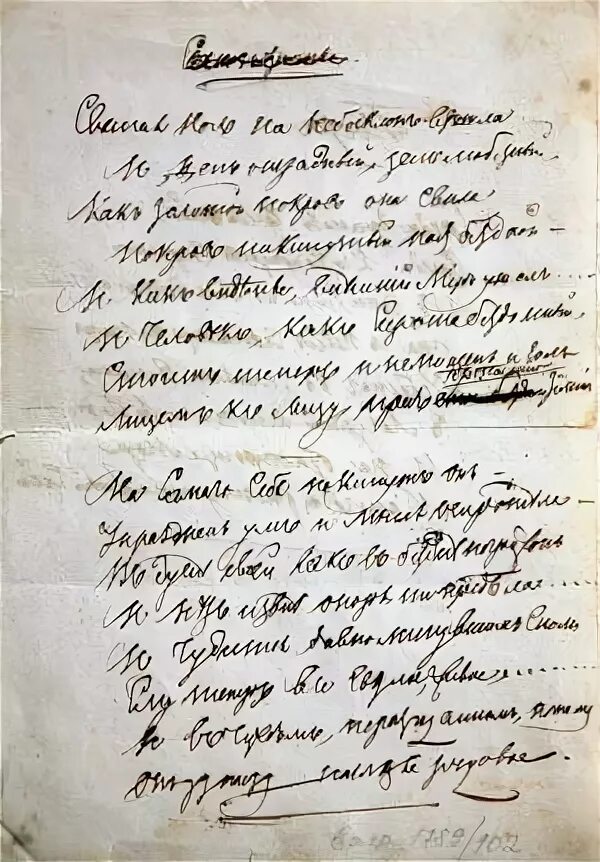 Святая ночь на небосклонъ взошла
И день отрадный, день любезный
Какъ золотой покровъ она свила
Покровъ накинутый надъ бездной —
И какъ видѣнье, внѣшній міръ ушелъ....
И человѣкъ, какъ сирота бездомный,
Стоитъ теперь и немощенъ и голъ
Лицемъ къ лицу, предъ пропастью темной
На самаго себя покинутъ онъ —
Упраздненъ умъ и мысль осиротѣла —
Въ душѣ своей какъ въ безднѣ погруженъ
И нѣтъ извнѣ опоры ни предѣла.....
И чудится давно минувшимъ сномъ
Ему теперь все свѣтлое, живое,......
И въ чуждомъ, неразгаданномъ, ночномъ
Онъ узнаетъ наслѣдье родовое.
1759/102